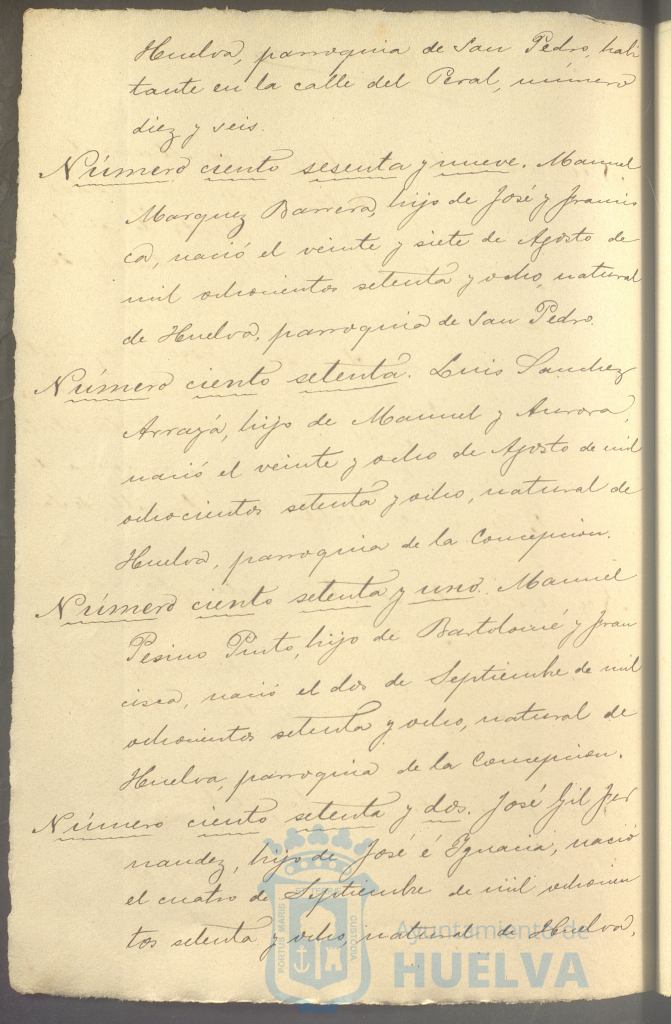 Huelva, parroquia de San Pedro, habi
tante en la calle del Peral, número
diez y seis.
Número ciento sesenta y nueve. Manuel
Marquez Barrera, hijo de José y Francis
ca, nació el veinte y siete de Agosto de
mil ochocientos setenta y ocho, natural
de Huelva, parroquia de San Pedro.
Número ciento setenta. Luis Sanchez
Arrayá, hijo de Manuel y Aurora,
nació el veinte y ocho de Agosto de mil
ochocientos setenta y ocho, natural de
Huelva, parroquia de la Concepcion.
Número ciento setenta y uno. Manuel
Pesino Pinto, hijo de Bartolomé y Fran
cisca, nació el dos de Septiembre de mil
ochocientos setenta y ocho, natural de
Huelva, parroquia de la Concepcion.
Número ciento setenta y dos. José Gil Fer
nandez, hijo de José é Ygnacia, nació
el cuatro de Septiembre de mil ochocien
tos setenta y ocho, natural de Huelva,
PORTUS MARIS ET TERRAE CUSTODIA
Ayuntamiento de
HUELVA